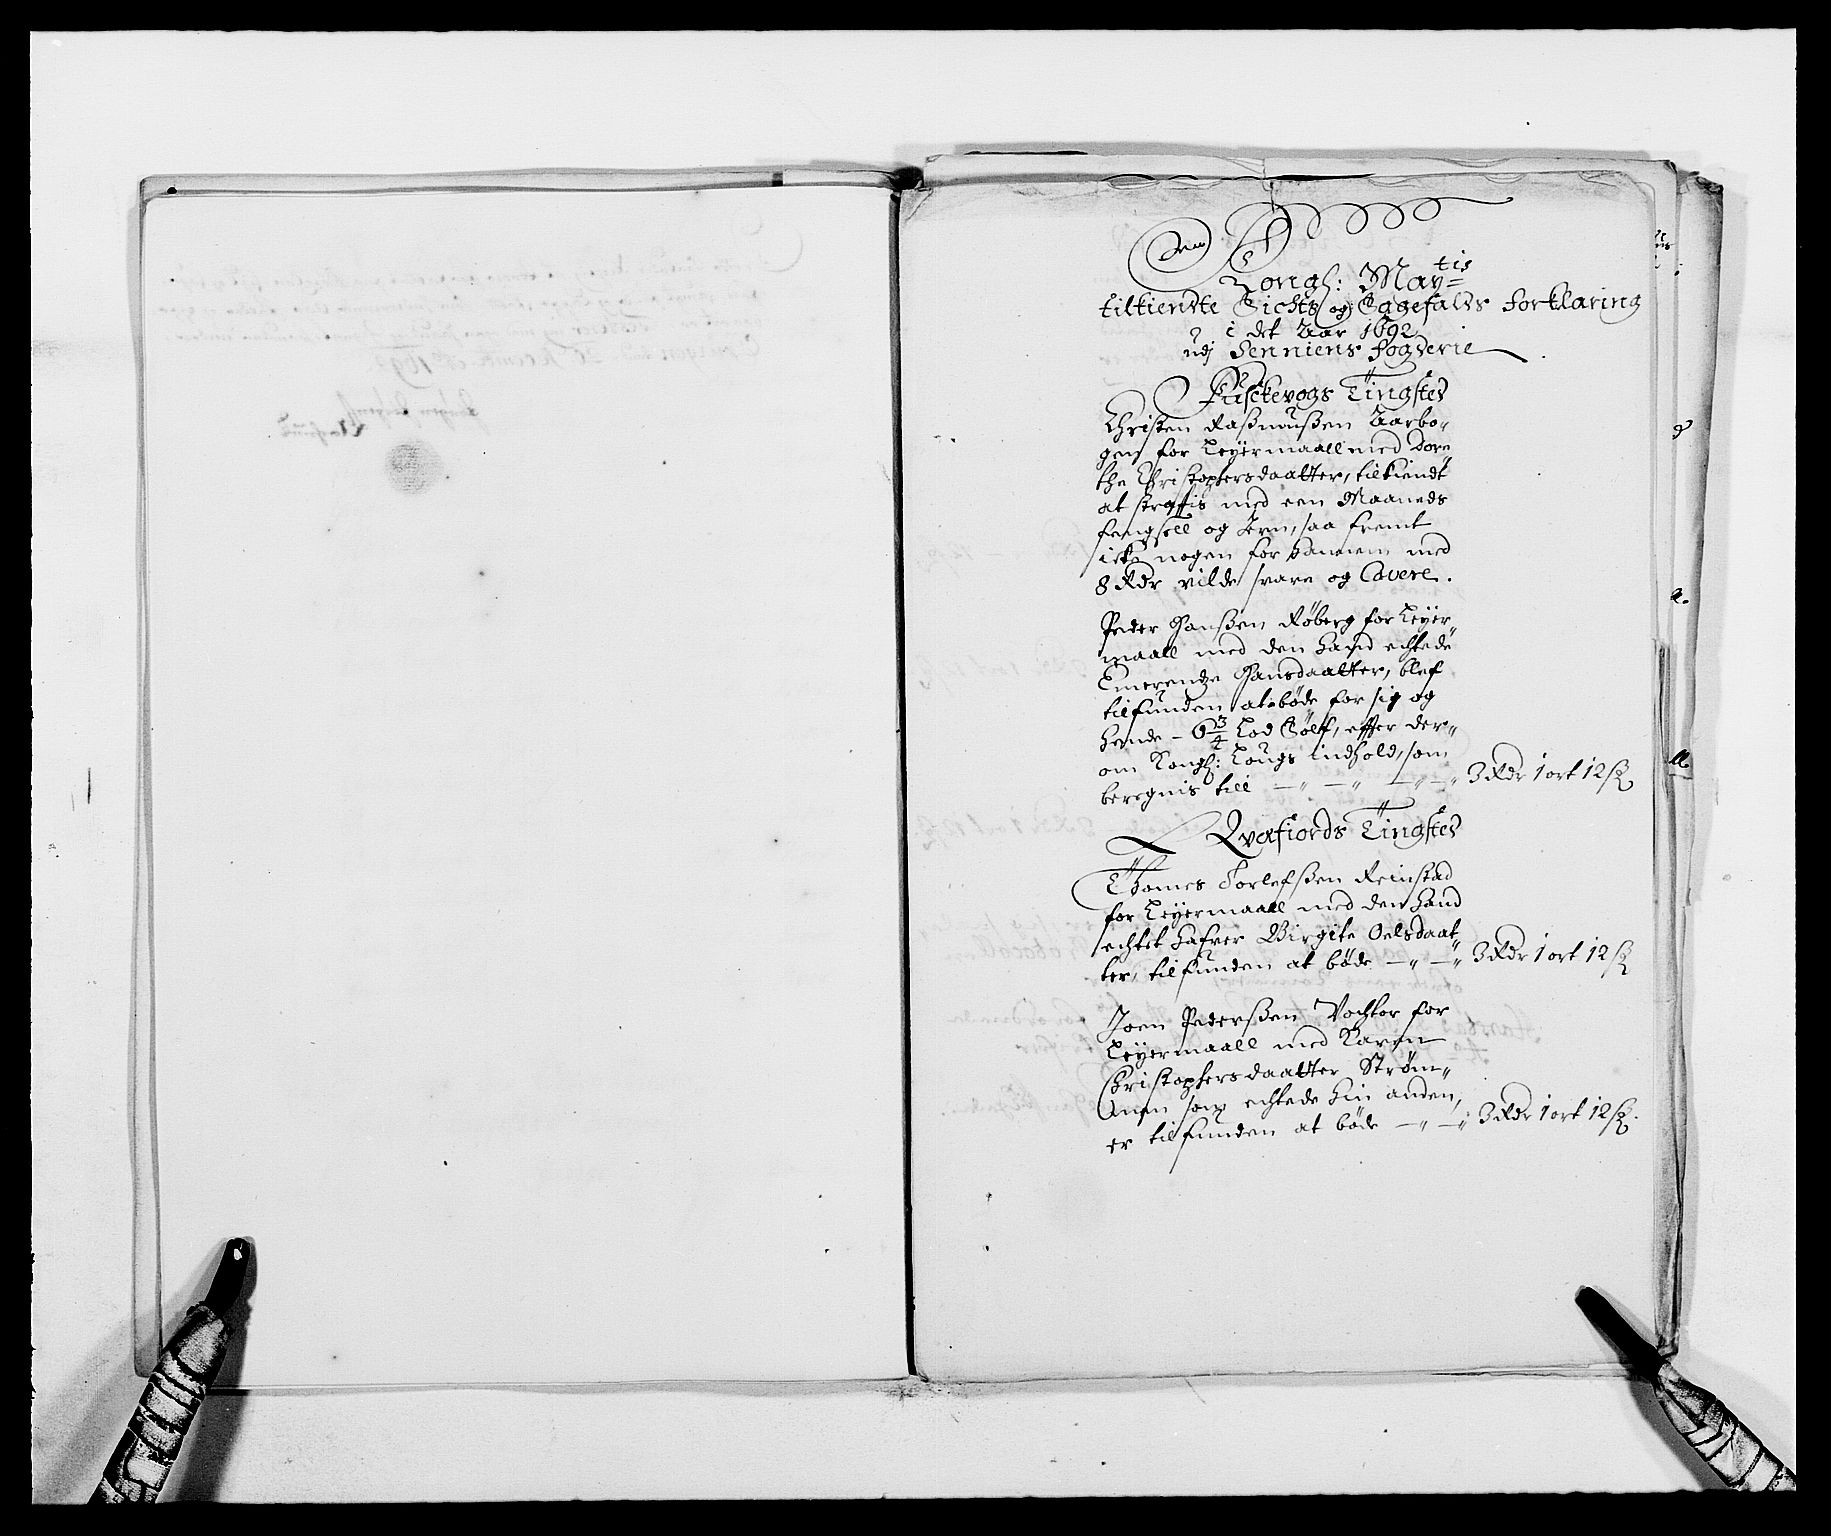 Den
Kongl: Maytis
tilkiendte Sichts og Saggefalds forklaring
i det Aar 1692
udj Senniens fogderie
Kasfevogs Tingsted
Christen Rasmusen Aarbo„
gen for Leyermaall med Dore„
the Christophersdaatter, tilkiendt
at straffis med een Maaneds
fengsell og Jern, saa fremt
icke nogen for hannem med
8 Rdr vilde svare og Cavere.
Peder Hanßen Røberg for Leyer„
maall med den hand echtede
Emerendze Hansdaatter, blef
tilfunden at bøde for sig og
hende - 6 3/4 Lod Sølf, effter der„
om Kongl: Lougs indhold, som
beregnis till — „ — „ — „ — „ 3 Rdr 1 ort 12 ß
Qvæfiords Tingsted
Thomes Torlefsßen Reinstad
for Leyermaall med den hand
echtet hafver Birgite Oelsdaat„
ter, tilfunden at bøde — „ — „ 3 Rdr 1 ort 12 ß
Joen Pederßen Vochtor for
Leyermaall med Karen
Christophersdaatter Strøm„
men som echtede hin anden,
er tilfunden at bøde — „ — „ 3 Rdr 1 ort 12 ß.